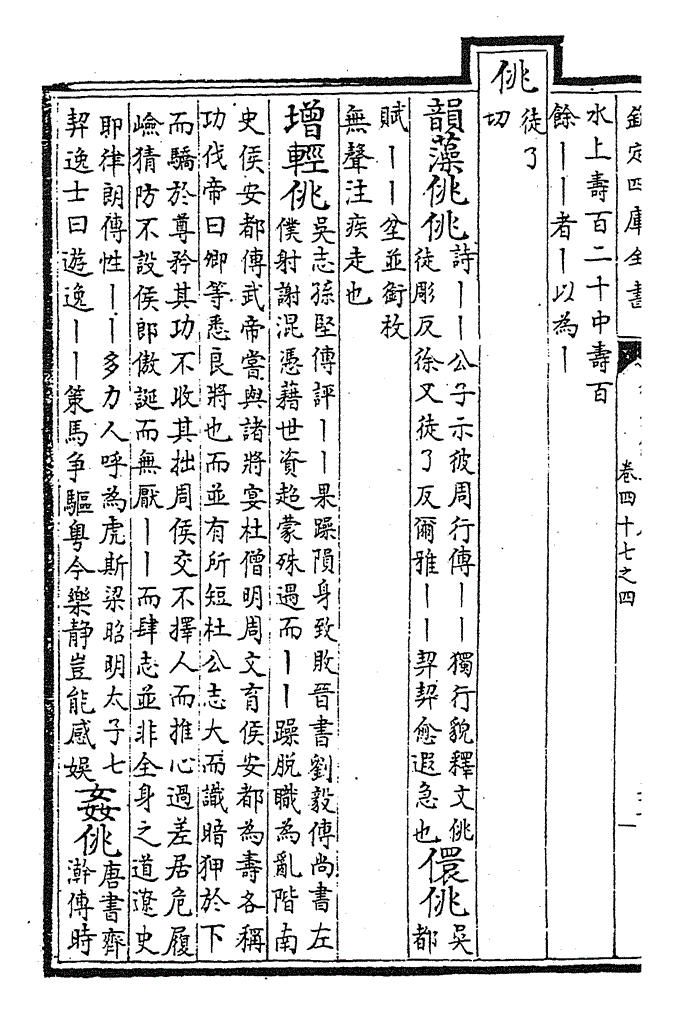 欽定四庫全書
卷四十七之四
水上壽百二十中壽百
餘丨丨者丨以為丨
佻
徒了
切
韻藻佻佻
詩丨丨公子示彼周行傳丨丨獨行貌釋文佻
徒彫反徐又徒了反爾雅丨丨契契愈遐急也
儇佻
吳
都
賦丨丨坌並銜枚
無聲注疾走也
增輕佻
吳志孫堅傳評丨丨果躁隕身致敗晉書劉毅傳尚書左
僕射謝混憑藉世資超蒙殊遇而丨丨躁脫職為亂階南
史侯安都傳武帝嘗與諸將宴杜僧明周文育侯安都為壽各稱
功伐帝曰卿等悉良將也而並有所短杜公志大而識暗狎於下
而驕於尊矜其功不收其拙周侯交不擇人而推心過差居危履
嶮猜防不設侯郎傲誕而無厭丨丨而肆志並非全身之道遼史
耶律朗傳性丨丨多力人呼為虎斯梁昭明太子七
契逸士曰遊逸丨丨策馬争驅粤今樂静豈能感娱
姦佻
唐書齊
澣傳時